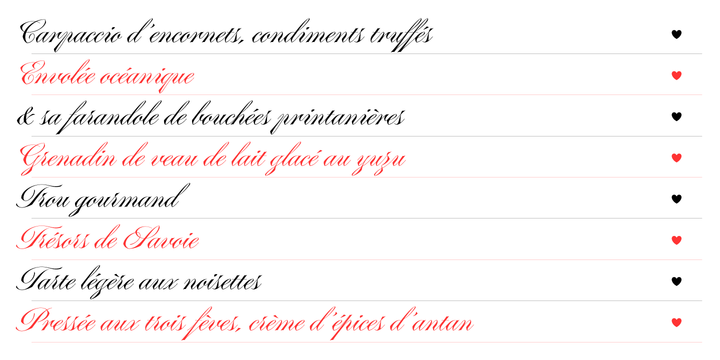 Carpaccio d'encornets, condiments truffés
Envolée océanique
& sa farandole de bouchées printanières
Grenadin de veau de lait glacé au yuzu
Trou gourmand
Trésors de Savoie
Tarte légère aux noisettes
Pressée aux trois fèves, crème d'épices d'antan